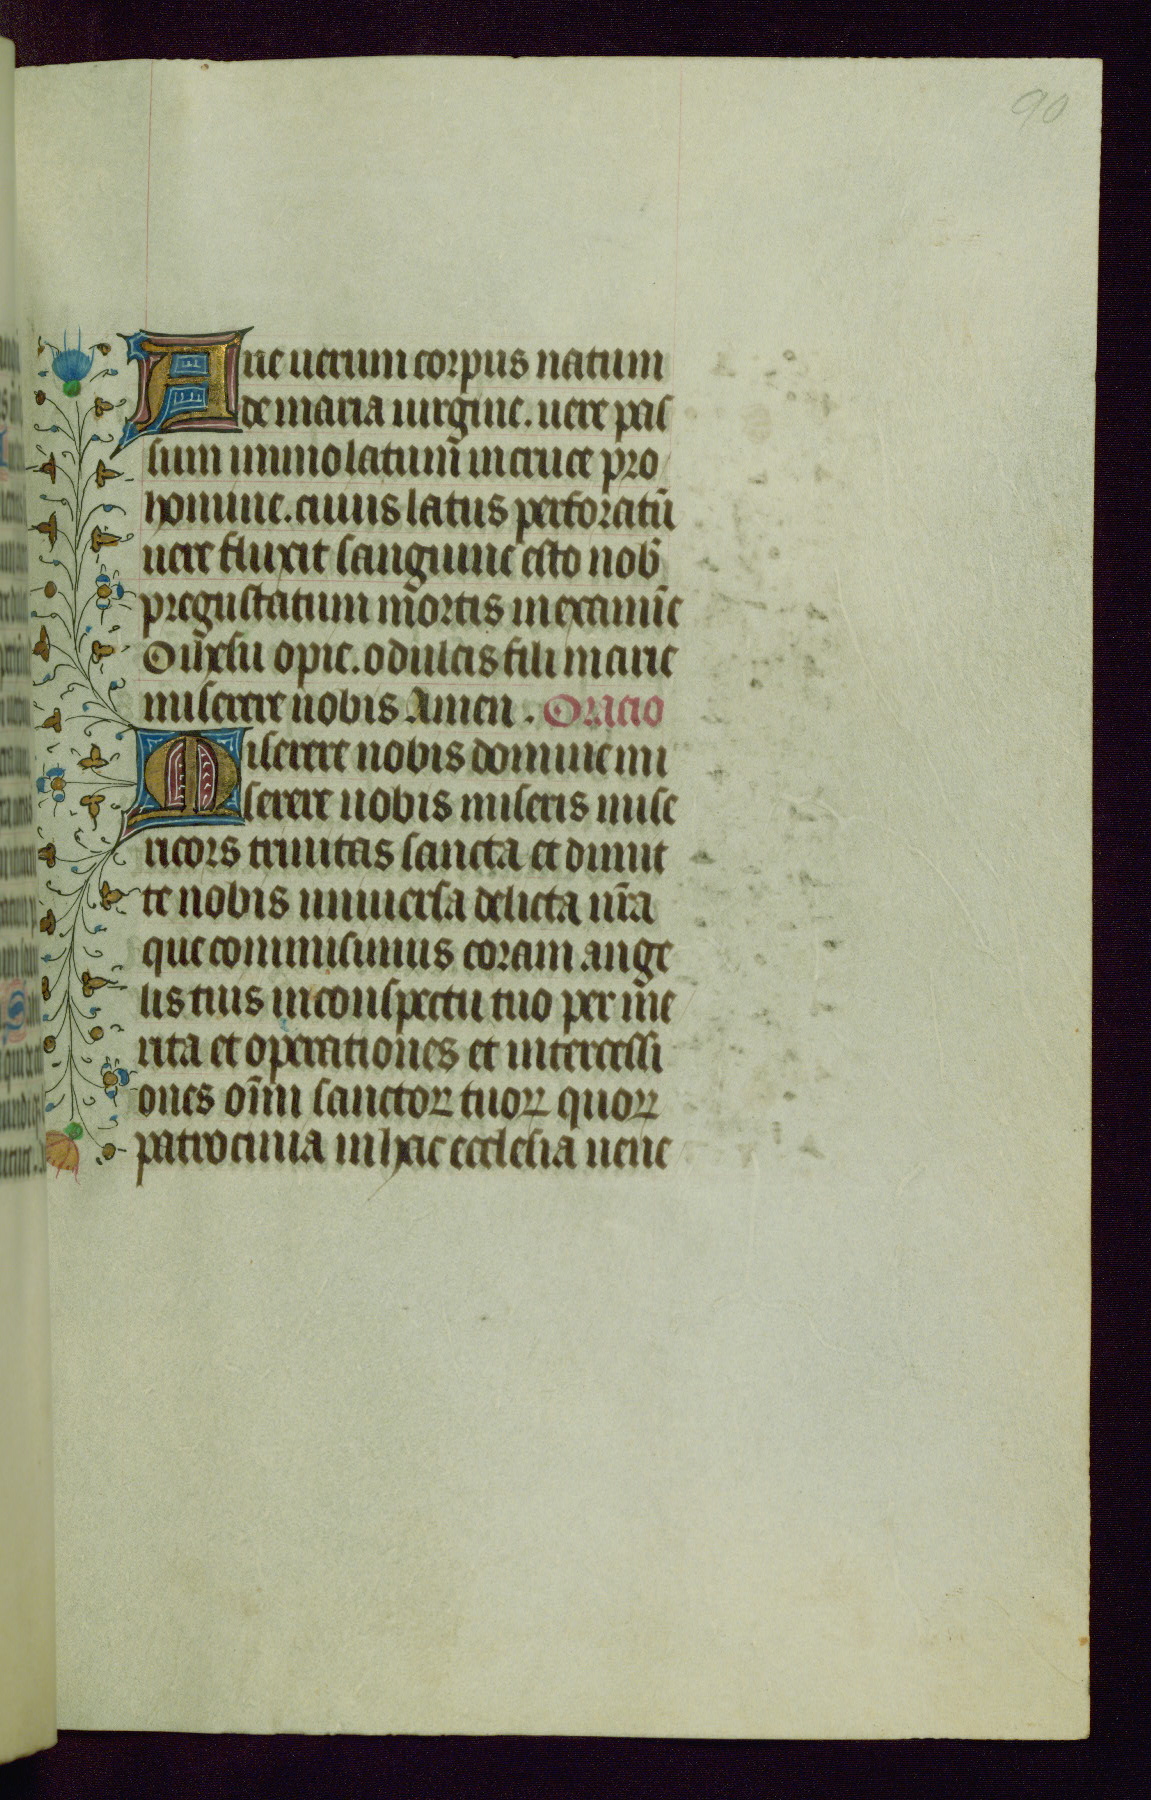 90
Aue uerum corpus natum
de maria uirgine. uere pas
sum immolatum̄ in cruce pro
homine. cuius latus perforatū
uere fluxit sanguine esto nob̄
pregustatum m̄ortis in examīe
O iħesu o pie. o dulcis fili marie
miserere nobis Amen . Oracio
Miserere nobis domine mi
serere nobis miseris mise
ricors trinitas sancta et dimit
te nobis uniuersa delicta nr̄a
que commisimus coram ange
lis tuis in conspectu tuo per me
rita et operationes et intercessi
ones om̄i sanctoꝝ tuoꝝ quoꝝ
patrocinia in hac ecclesia uene